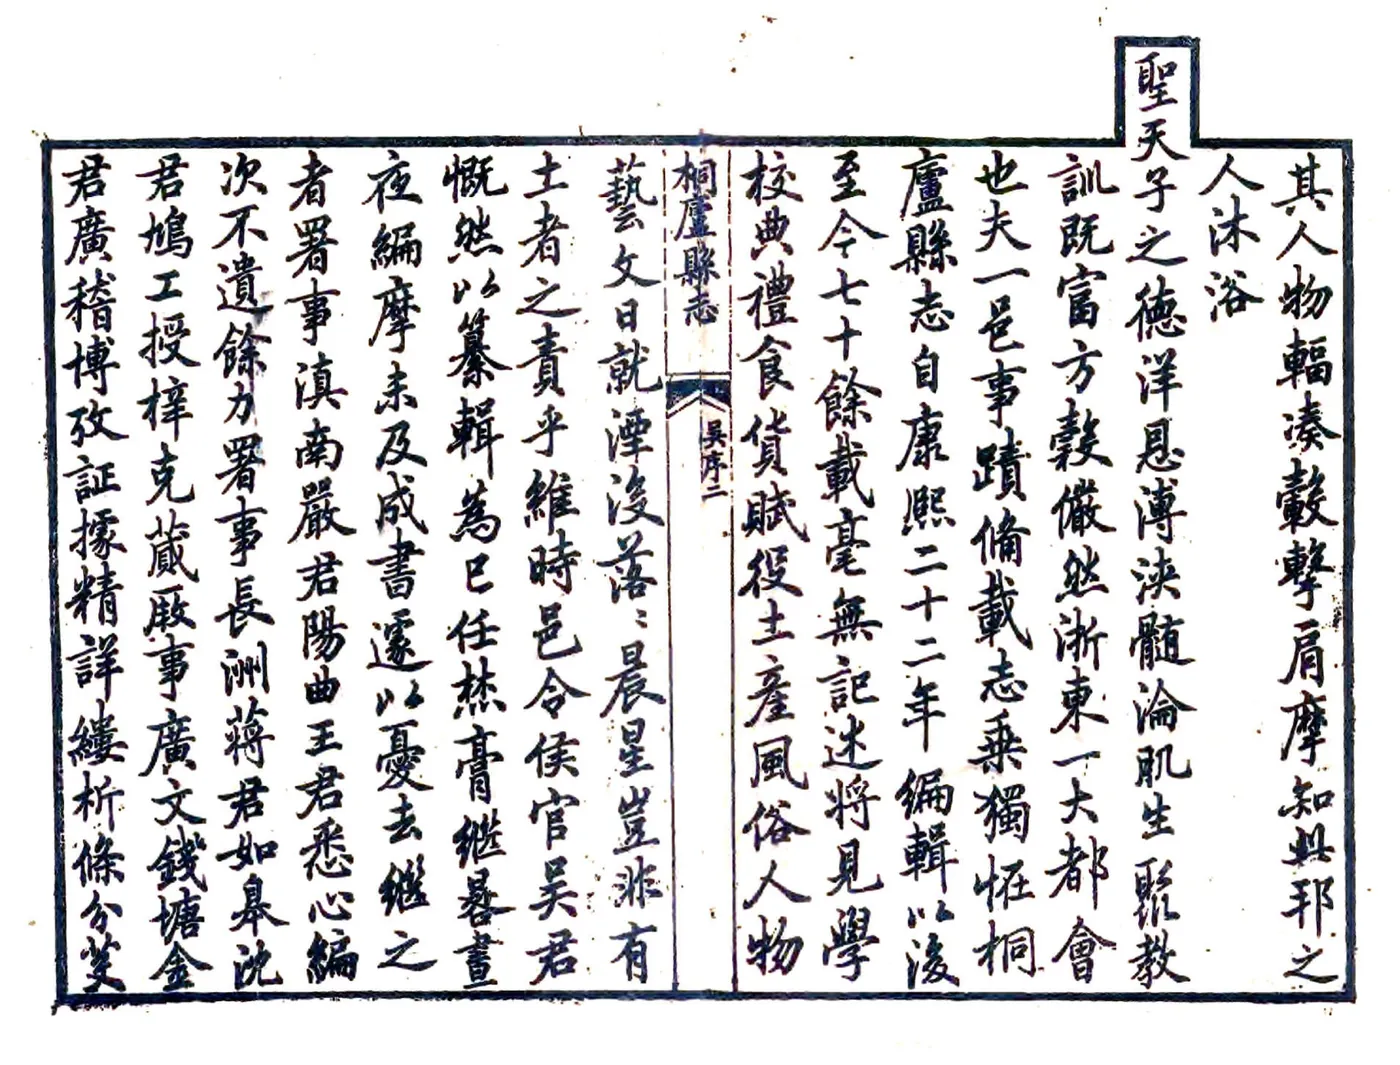 其人物輻湊轂擊肩摩知此邦之
人沐浴
聖天子之德洋恩溥浹髓淪肌生聚教
訓既富方穀儼然浙東一大都會
也夫一邑事蹟備載志乘獨恠桐
廬縣志自康熙二十二年 編輯以後
至今七十餘載毫無記述將見學
校典禮食貨賦役土產風俗人物
桐廬縣志
吳序二
藝文日就湮沒落〻晨星豈非有
土者之責乎維時邑令侯官吳君
慨然以纂輯為已任焚膏繼晷晝
夜編摩未及成書遽以憂去繼之
者署事滇南嚴君陽曲王君悉心編
次不遺餘力署事長洲蔣君如皋沈
君鳩工授梓克蕆厥事廣文錢塘金
君廣稽博攷証據精詳縷析條分芟